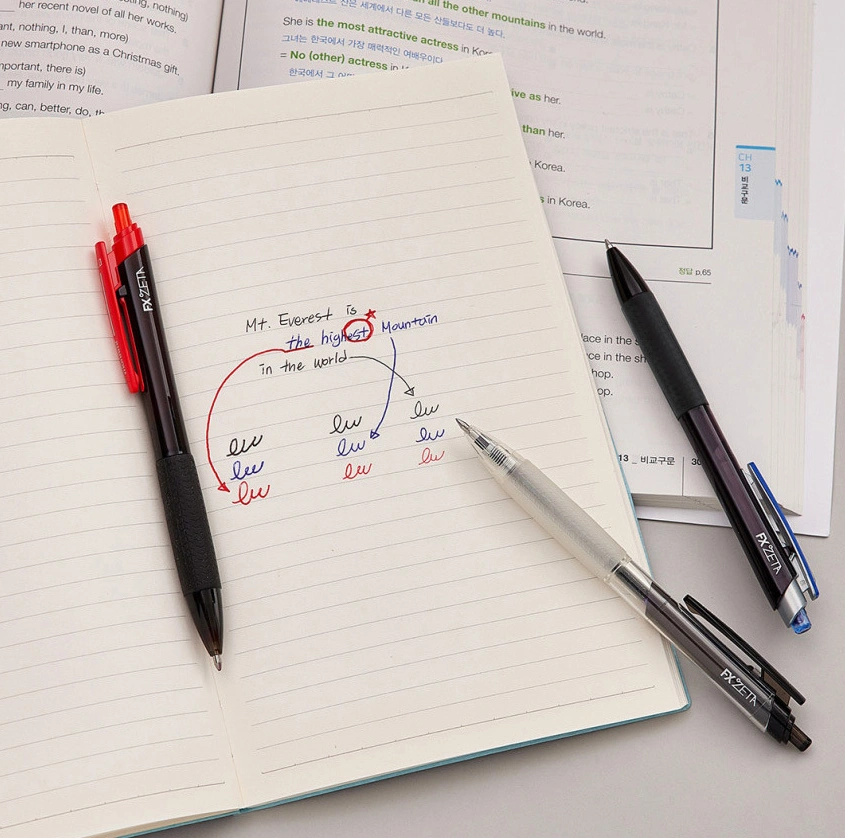 her recent novel of all her works.
ant, nothing, I, than, more)
new smartphone as a Christmas gift.
mportant, there is)
my family in my life.
ng, can, better, do,
all the other mountains in the world.
산은 세계에서 다른 모든 산들보다도 더 높다.
She is the most attractive actress in
그녀는 한국에서 가장 매력적인 여배우이다.
= No (other) actress in
한국에서 그
ive as her.
than her.
Korea.
s in Korea.
CH
13
비교구문
정답 p.65
lace in the
ce in the sh
hop.
op.
13 _ 비교구문 30
Mt. Everest is
the highest Mountain
in the world
lw lw lw
lw lw lw
lw lw lw
FX ZETA
FX ZETA
FX ZETA